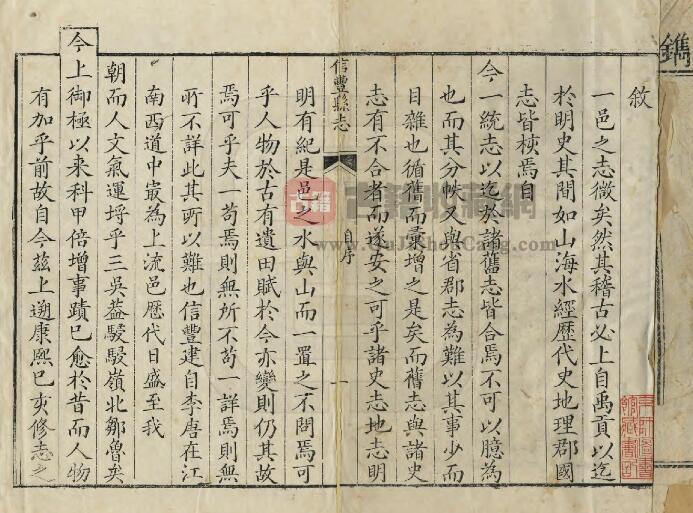 鐫
敘
一邑之志微矣然其稽古必上自禹貢以迄
於明史其間如山海水經歷代史地理郡國
志皆核焉自
今一統志以迄於諸舊志皆合焉不可以臆為
也而其分帙又與省郡志為難以其事少而
目雜也循舊而彙增之是矣而舊志與諸史
志有不合者而遂安之可乎諸史志地志明
信豐縣志
自序
一
明有紀是邑之水與山而一置之不問焉可
乎人物於古有遺田賦於今亦變則仍其故
焉可乎夫一苟焉則無所不苟一詳焉則無
所不詳此其所以難也信豐建自李唐在江
南西道中最為上流邑歷代日盛至我
朝而人文氣運埒乎三吳葢駸駸嶺北鄒魯矣
今上御極以来科甲倍增事蹟已愈於昔而人物
有加乎前故自今茲上遡康熙己亥修志之
古籍 古籍收藏網
www.GuJiShouCang.com